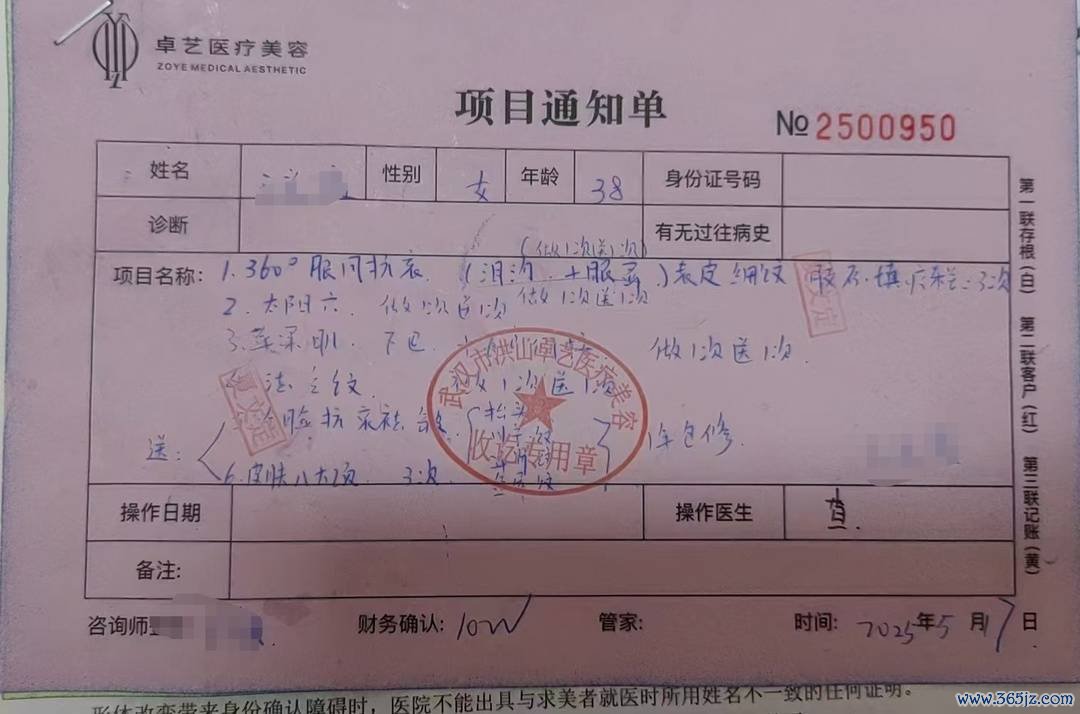 卓艺医疗美容
ZOYE MEDICAL AESTHETIC
项目通知单
№ 2500950
姓名 性别 女 年龄 38 身份证号码
诊断 有无过往病史
(做1次送1次)
项目名称: 1.360°眼周抗衰 (泪沟 + 眼 ) 表皮细纹 3次
做1次送1次
2.太阳穴 做1次送1次
3. 下巴 做1次送1次
法令纹 做1次送1次
脸抗衰 抬头 年包修
送:
6.皮肤八大项 3次
武汉市洪山卓艺医疗美容
收讫专用章
操作日期 操作医生
备注:
咨询师 财务确认: 10W 管家: 时间: 2025年5月17日
第一联存根(白) 第二联客户(红) 第三联记账(黄)
形体改变带来身份确认障碍时，医院不能出具与求美者就医时所用姓名不一致的任何证明。
www.365jz.com